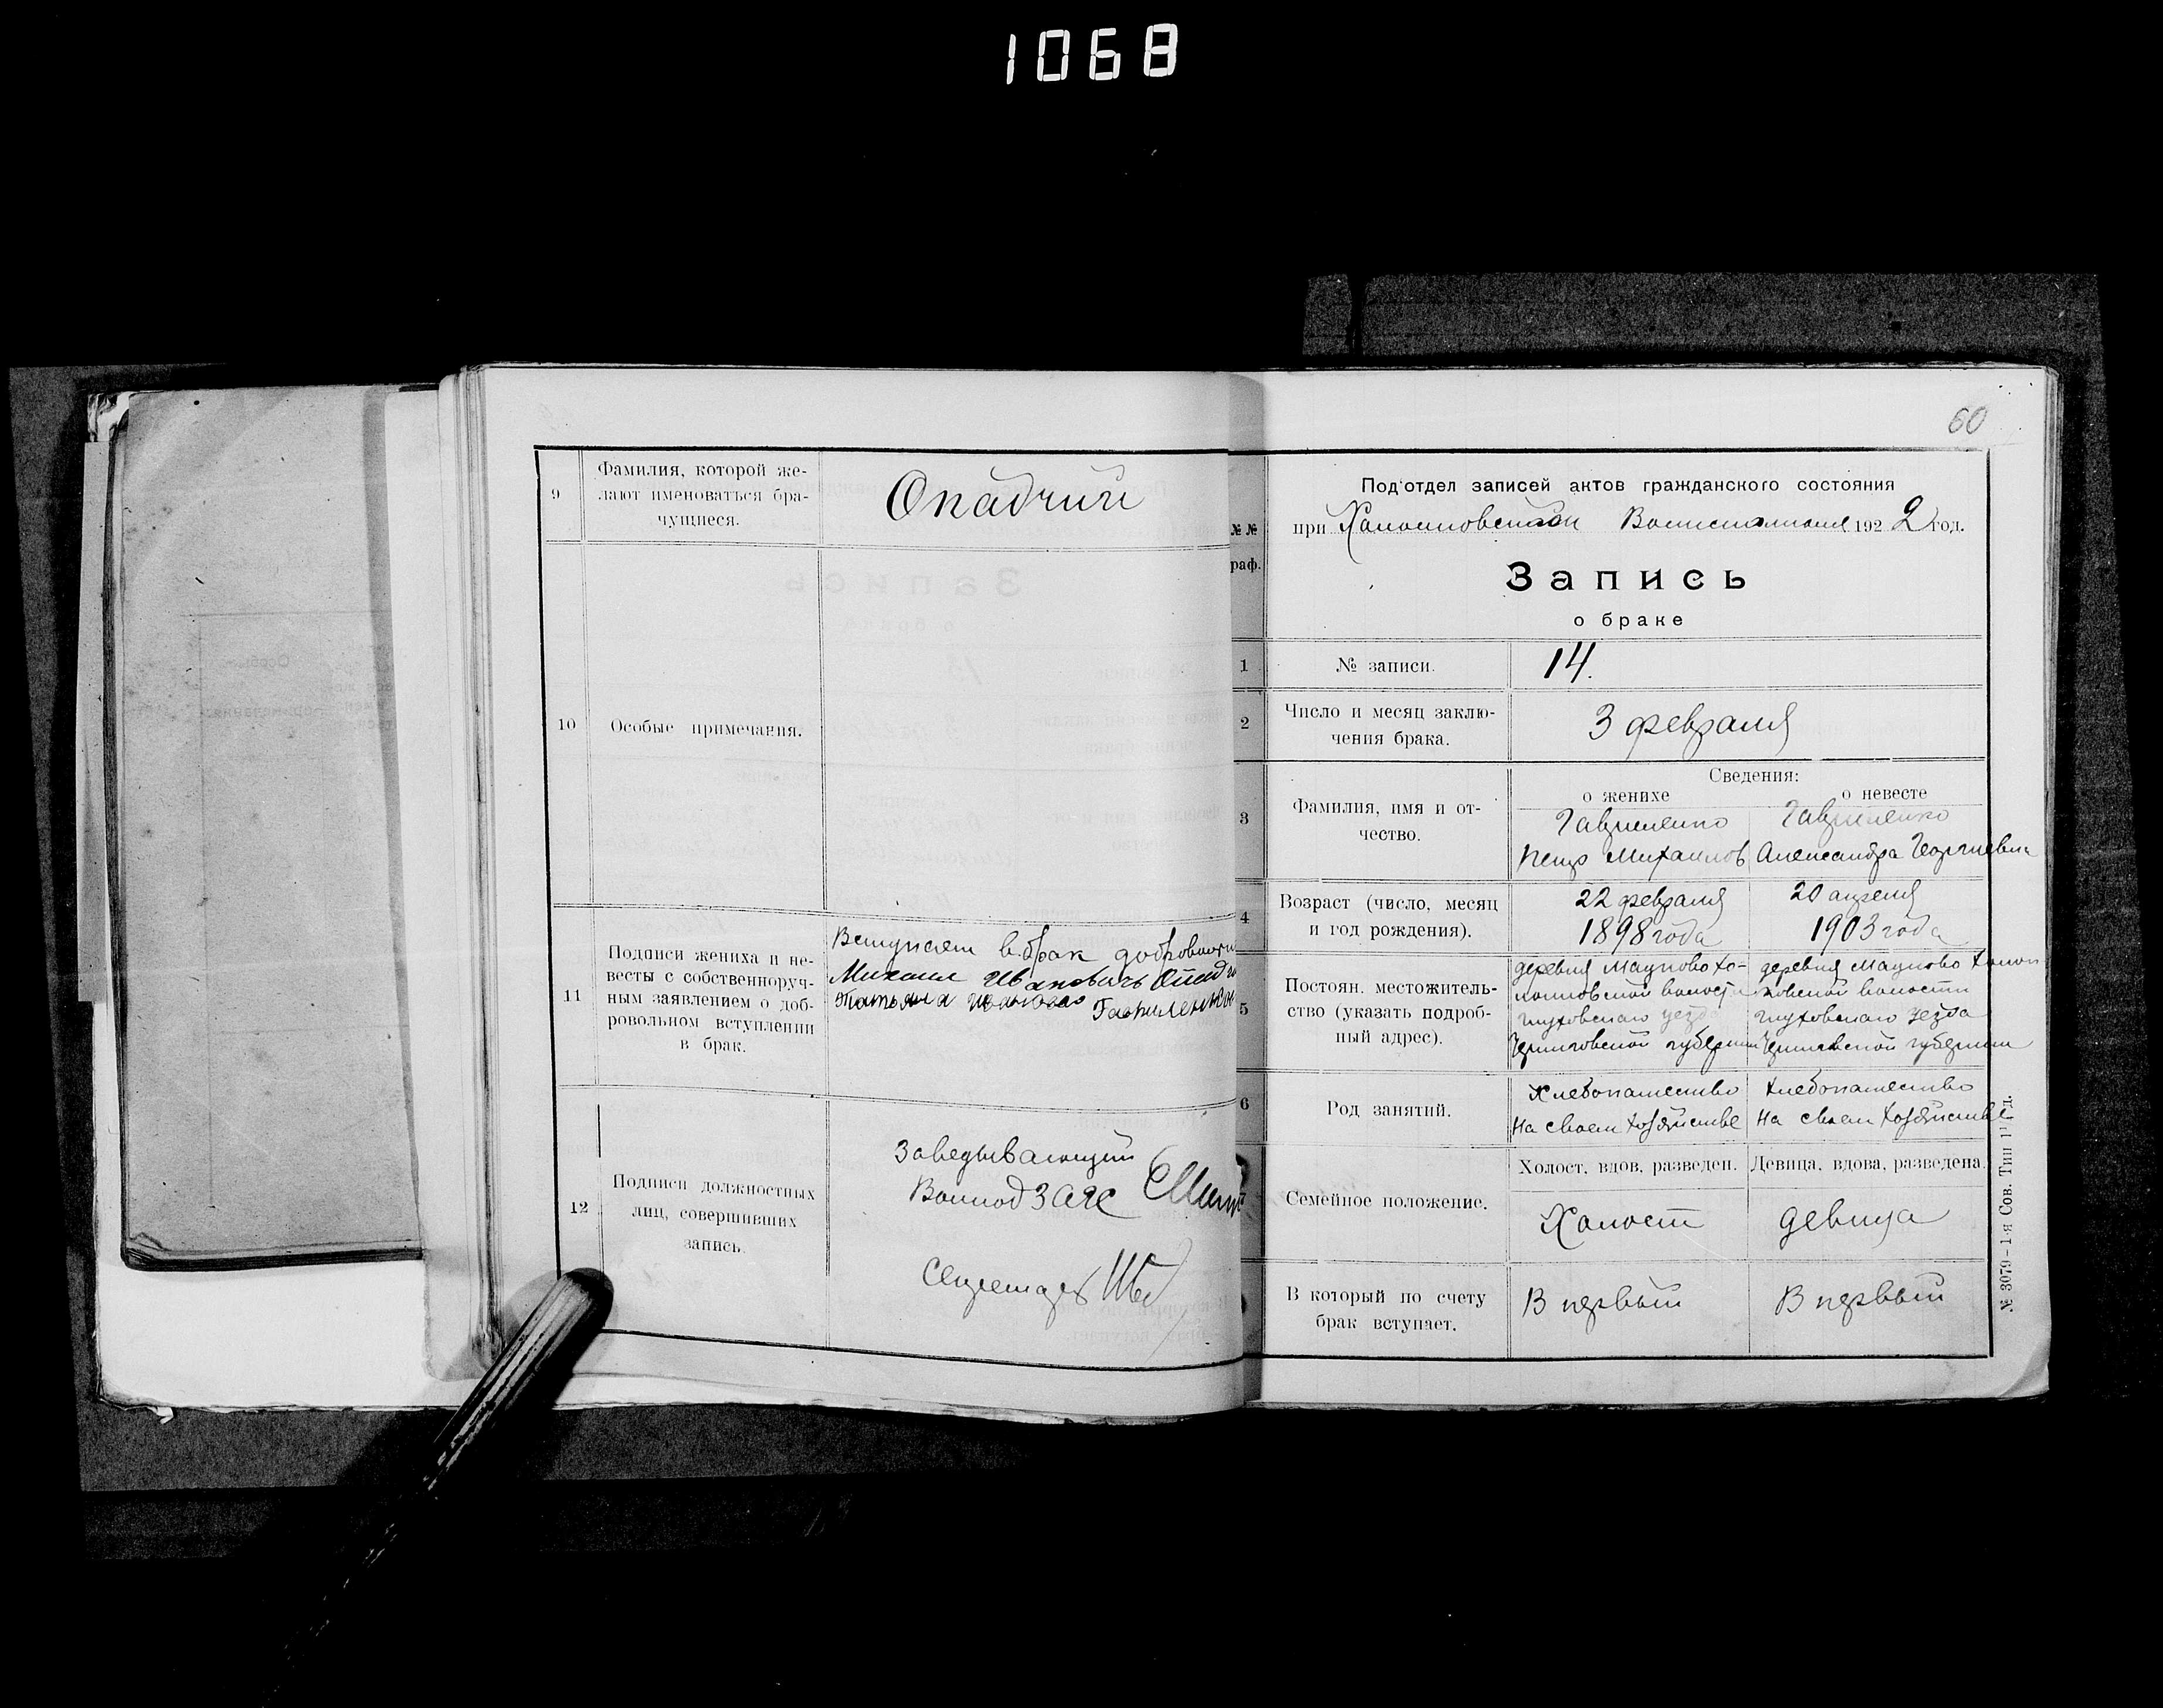 1068
60
9
Фамилия, которой же-
лают именоваться бра-
чущиеся.
Опадчий
10
Особые примечания.
11
Подписи жениха и не-
весты с собственноруч-
ным заявлением о доб-
ровольном вступлении
в брак.
Вступаем в брак
Михаил Иванович
Татьяна Гавриленков
12
Подписи должностных
лиц, совершивших
запись.
Заведывающий
Секретарь
№№
раф.
Под'отдел записей актов гражданского состояния
при 192 2 год.
Запись
о браке
1
№ записи.
14.
2
Число и месяц заклю-
чения брака.
3 февраля
Сведения:
о женихе
о невесте
3
Фамилия, имя и от-
чество.
Гавриленко
Петр Михайлов
Гавриленко
Александра Георгиевна
4
Возраст (число, месяц
и год рождения).
22 февраля
1898 года
20 апреля
1903 года
5
Постоян. местожитель-
ство (указать подроб-
ный адрес).
деревня Мацково Хо-
волости
глуховского уезда
Черниговской губернии
деревня Мацково
волости
глуховского уезда
Черниговской губернии
6
Род занятий.
Хлебопашество
На своем хозяйстве
Хлебопашество
На своем хозяйстве
Семейное положение.
Холост, вдов, разведен.
Девица, вдова, разведена.
Холост
девица
В который по счету
брак вступает.
В первый
В первый